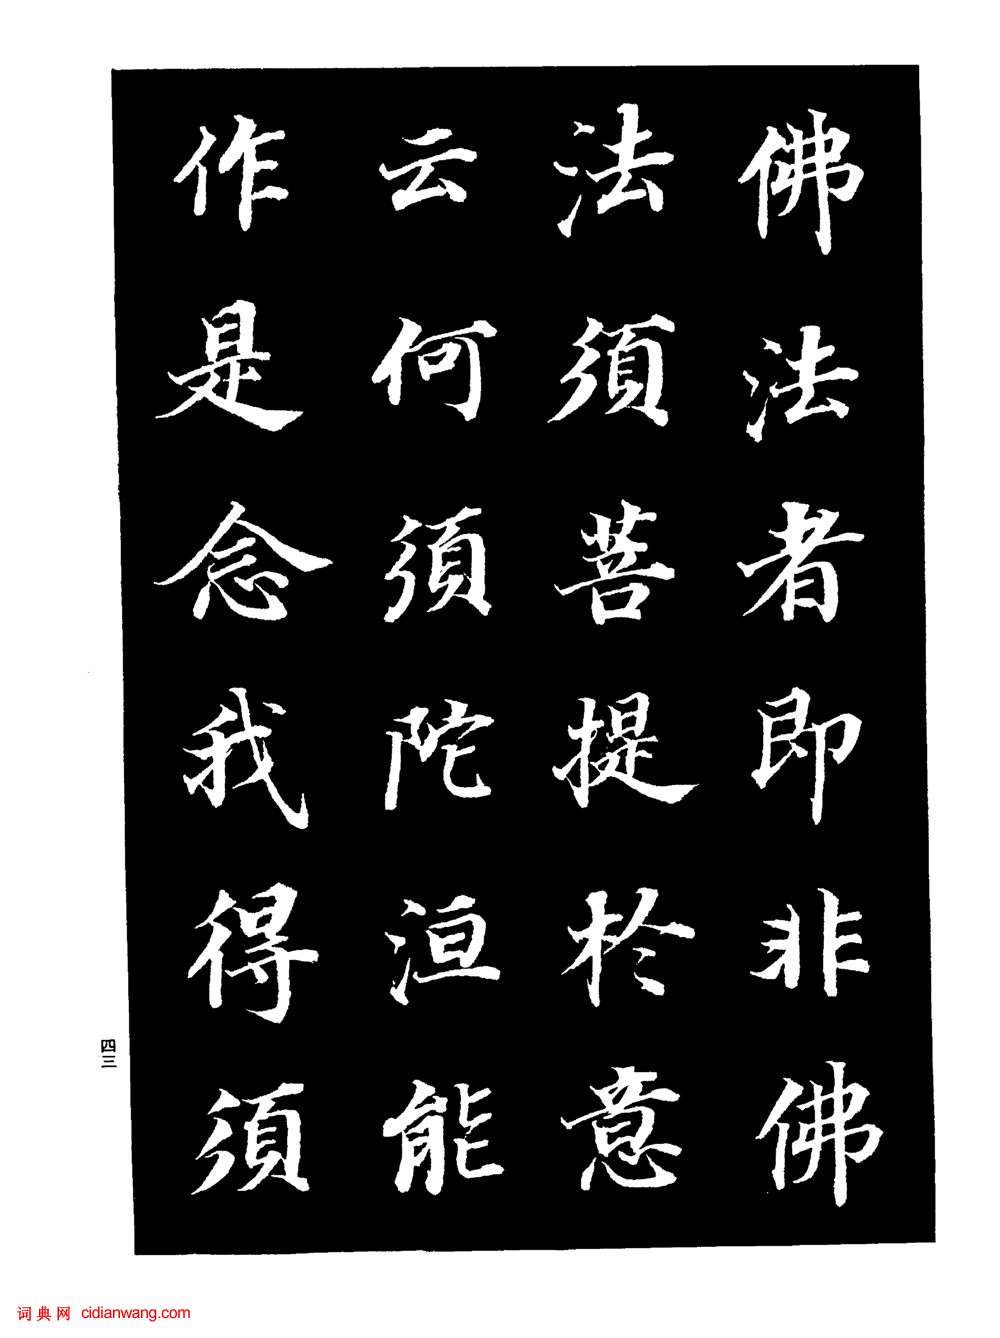 佛法者即非佛
法須菩提於意
云何須陀洹能
作是念我得須
四三
词典网 cidianwang.com